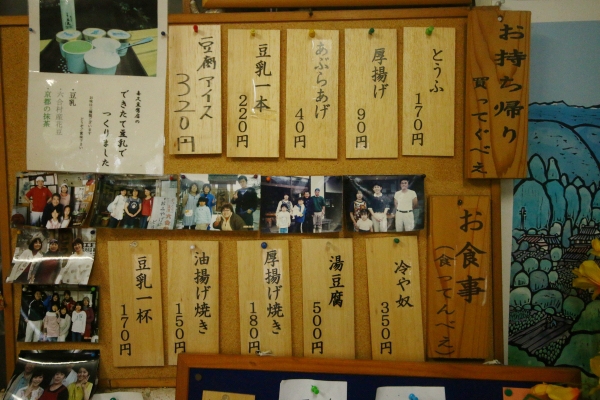 お持ち帰り
買ってぐべえ
とうふ
170円
厚揚げ
90円
あぶらあげ
40円
豆乳一本
220円
豆腐アイス
320円
できたて豆乳で
つくりました
・豆乳
・京都の抹茶
お食事
(食ってんべえ)
冷や奴
350円
湯豆腐
500円
厚揚げ焼き
180円
油揚げ焼き
150円
豆乳一杯
170円